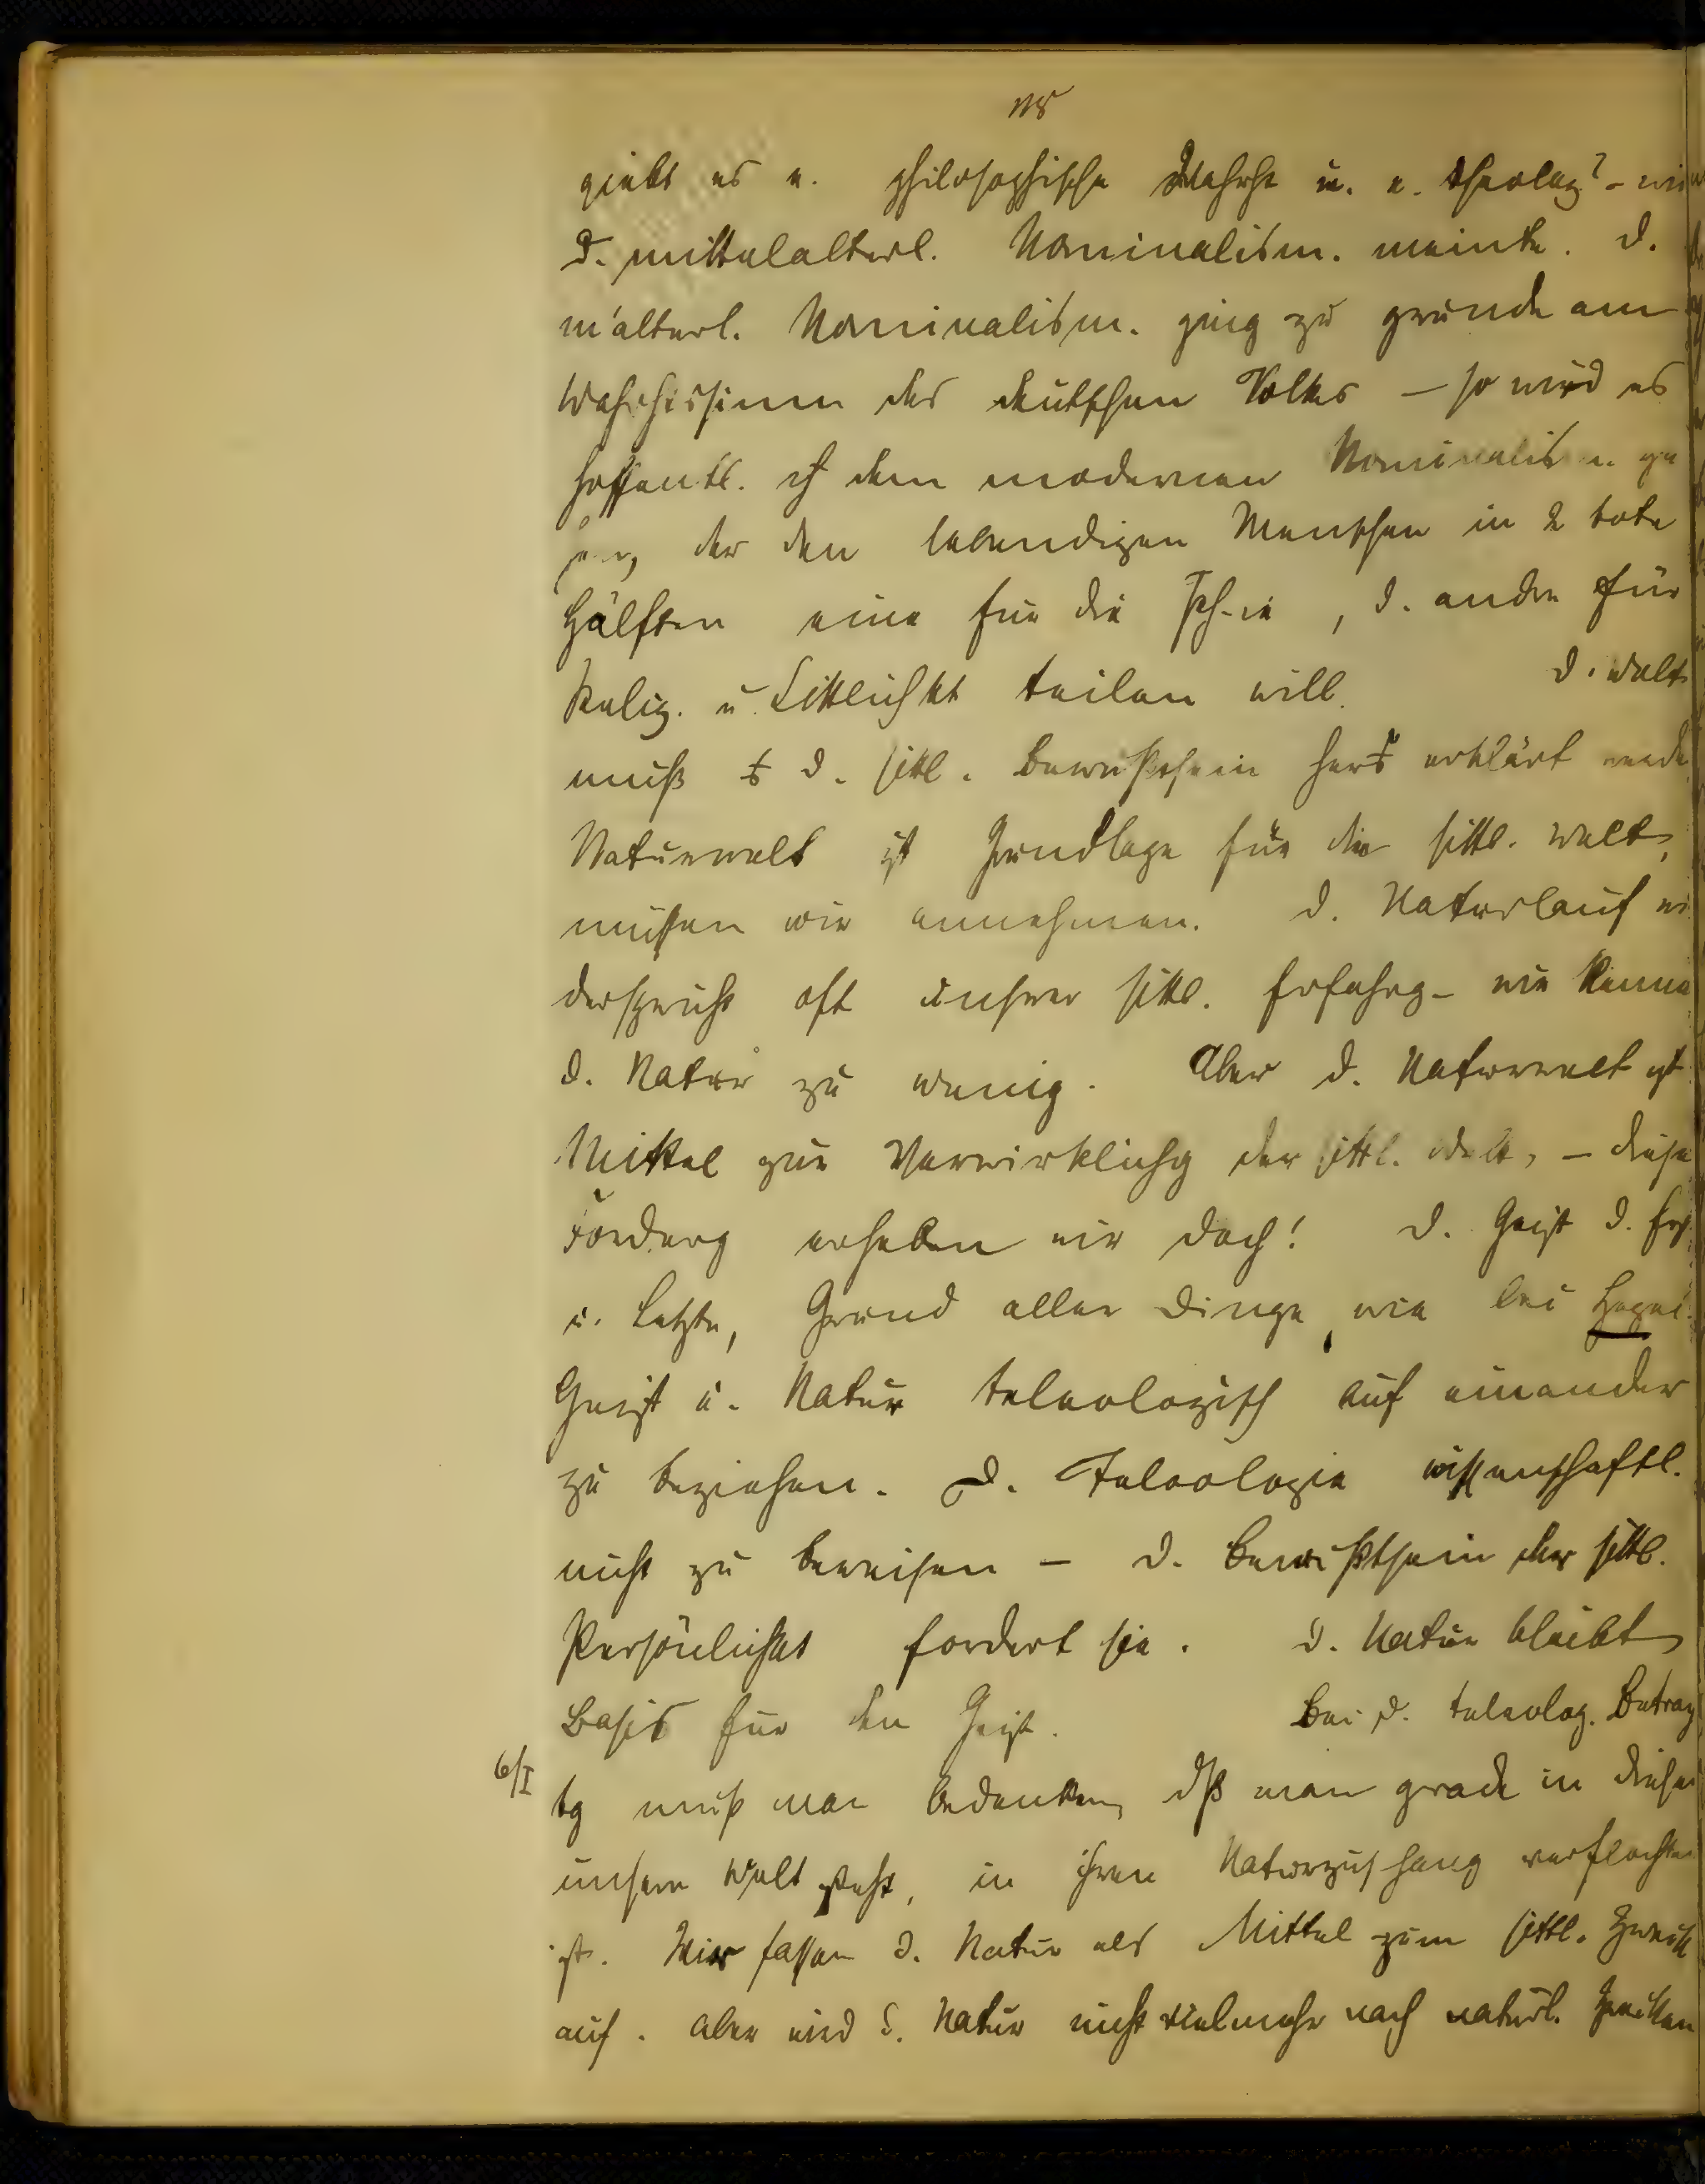 giebt es e. philosophische Wahrht u. e. theolog? - wie
D. mittelalterl. Nominalism. meinte. D.
m'alterl. Nominalism. ging zu grunde am
Wahrhtssinn des deutschen Volkes — so wird es
hoffentl. dem modernen Nominalism. ge
der den lebendigen Menschen in 2 tote
Hälften eine für die , d. andre für
Relig. u. Sittlichkt teilen will. D. Welt
muß d. sittl. Bewußtsein her erklärt werde
Naturwelt ist Grundlage für die sittl. Welt,
müssen wir annehmen. D. Naturlauf wi
derspricht oft unsrer sittl. Erfahrg - wir kenne
d. Natur zu wenig. Aber d. Naturwelt ist
Mittel zur Verwirklichg der sittl. Welt, — diese
Forderg erheben wir doch! D. Geist d. Erst
u. Letzte, Grund aller Dinge, wie bei Hegel
Geist u. Natur teleologisch auf einander
zu beziehen. D. Teleologie wissenschaftl.
nicht zu beweisen — d. Bewußtsein der sittl.
Persönlichkt fordert sie. D. Natur bleibt
Basis für den Geist. Bei d. teleolog. Betrag
6/I tg muß man bedenken, dß man grade in dieser
unsern Welt steht, in ihren Naturzus'hang verflochten
ist. Wir fassen d. Natur als Mittel zum sittl. Zweck
auf. Aber wird d. Natur nicht vielmehr nach natürl. Zwecken